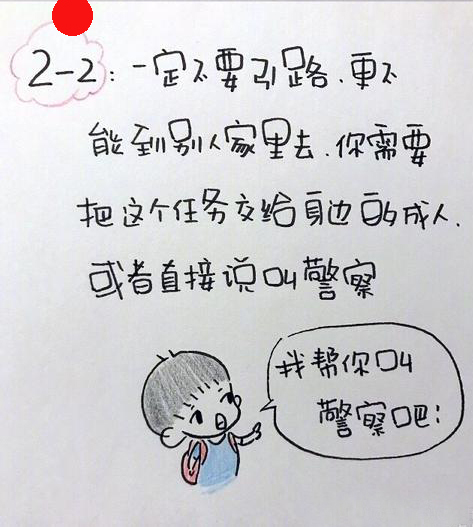 2-2：一定不要引路、更不
能到别人家里去、你需要
把这个任务交给身边的成人、
或者直接说叫警察
我帮你叫
警察吧！